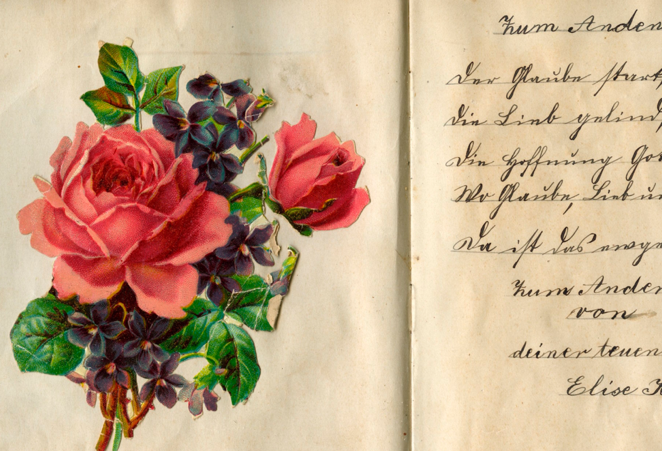 Zum Anden
Der Glaube stark
Die Lieb gelind
Die Hoffnung Got
Wo Glaube, Lieb u
Da ist das ewge
Zum Anden
von
deiner teuen
Elise K